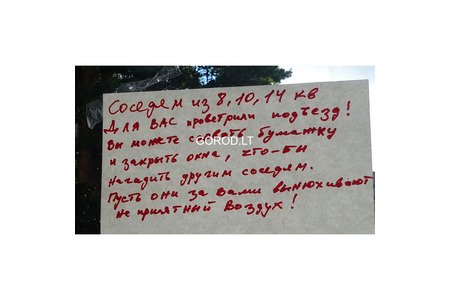 Соседям из 8, 10, 14 кв
Для ВАС проветрили подъезд!
Вы можете сорвать бумажку
и закрыть окна, что-бы
Нагадить другим соседям.
Пусть они за Вами вынюхивают
не приятный воздух!
GOROD.LT